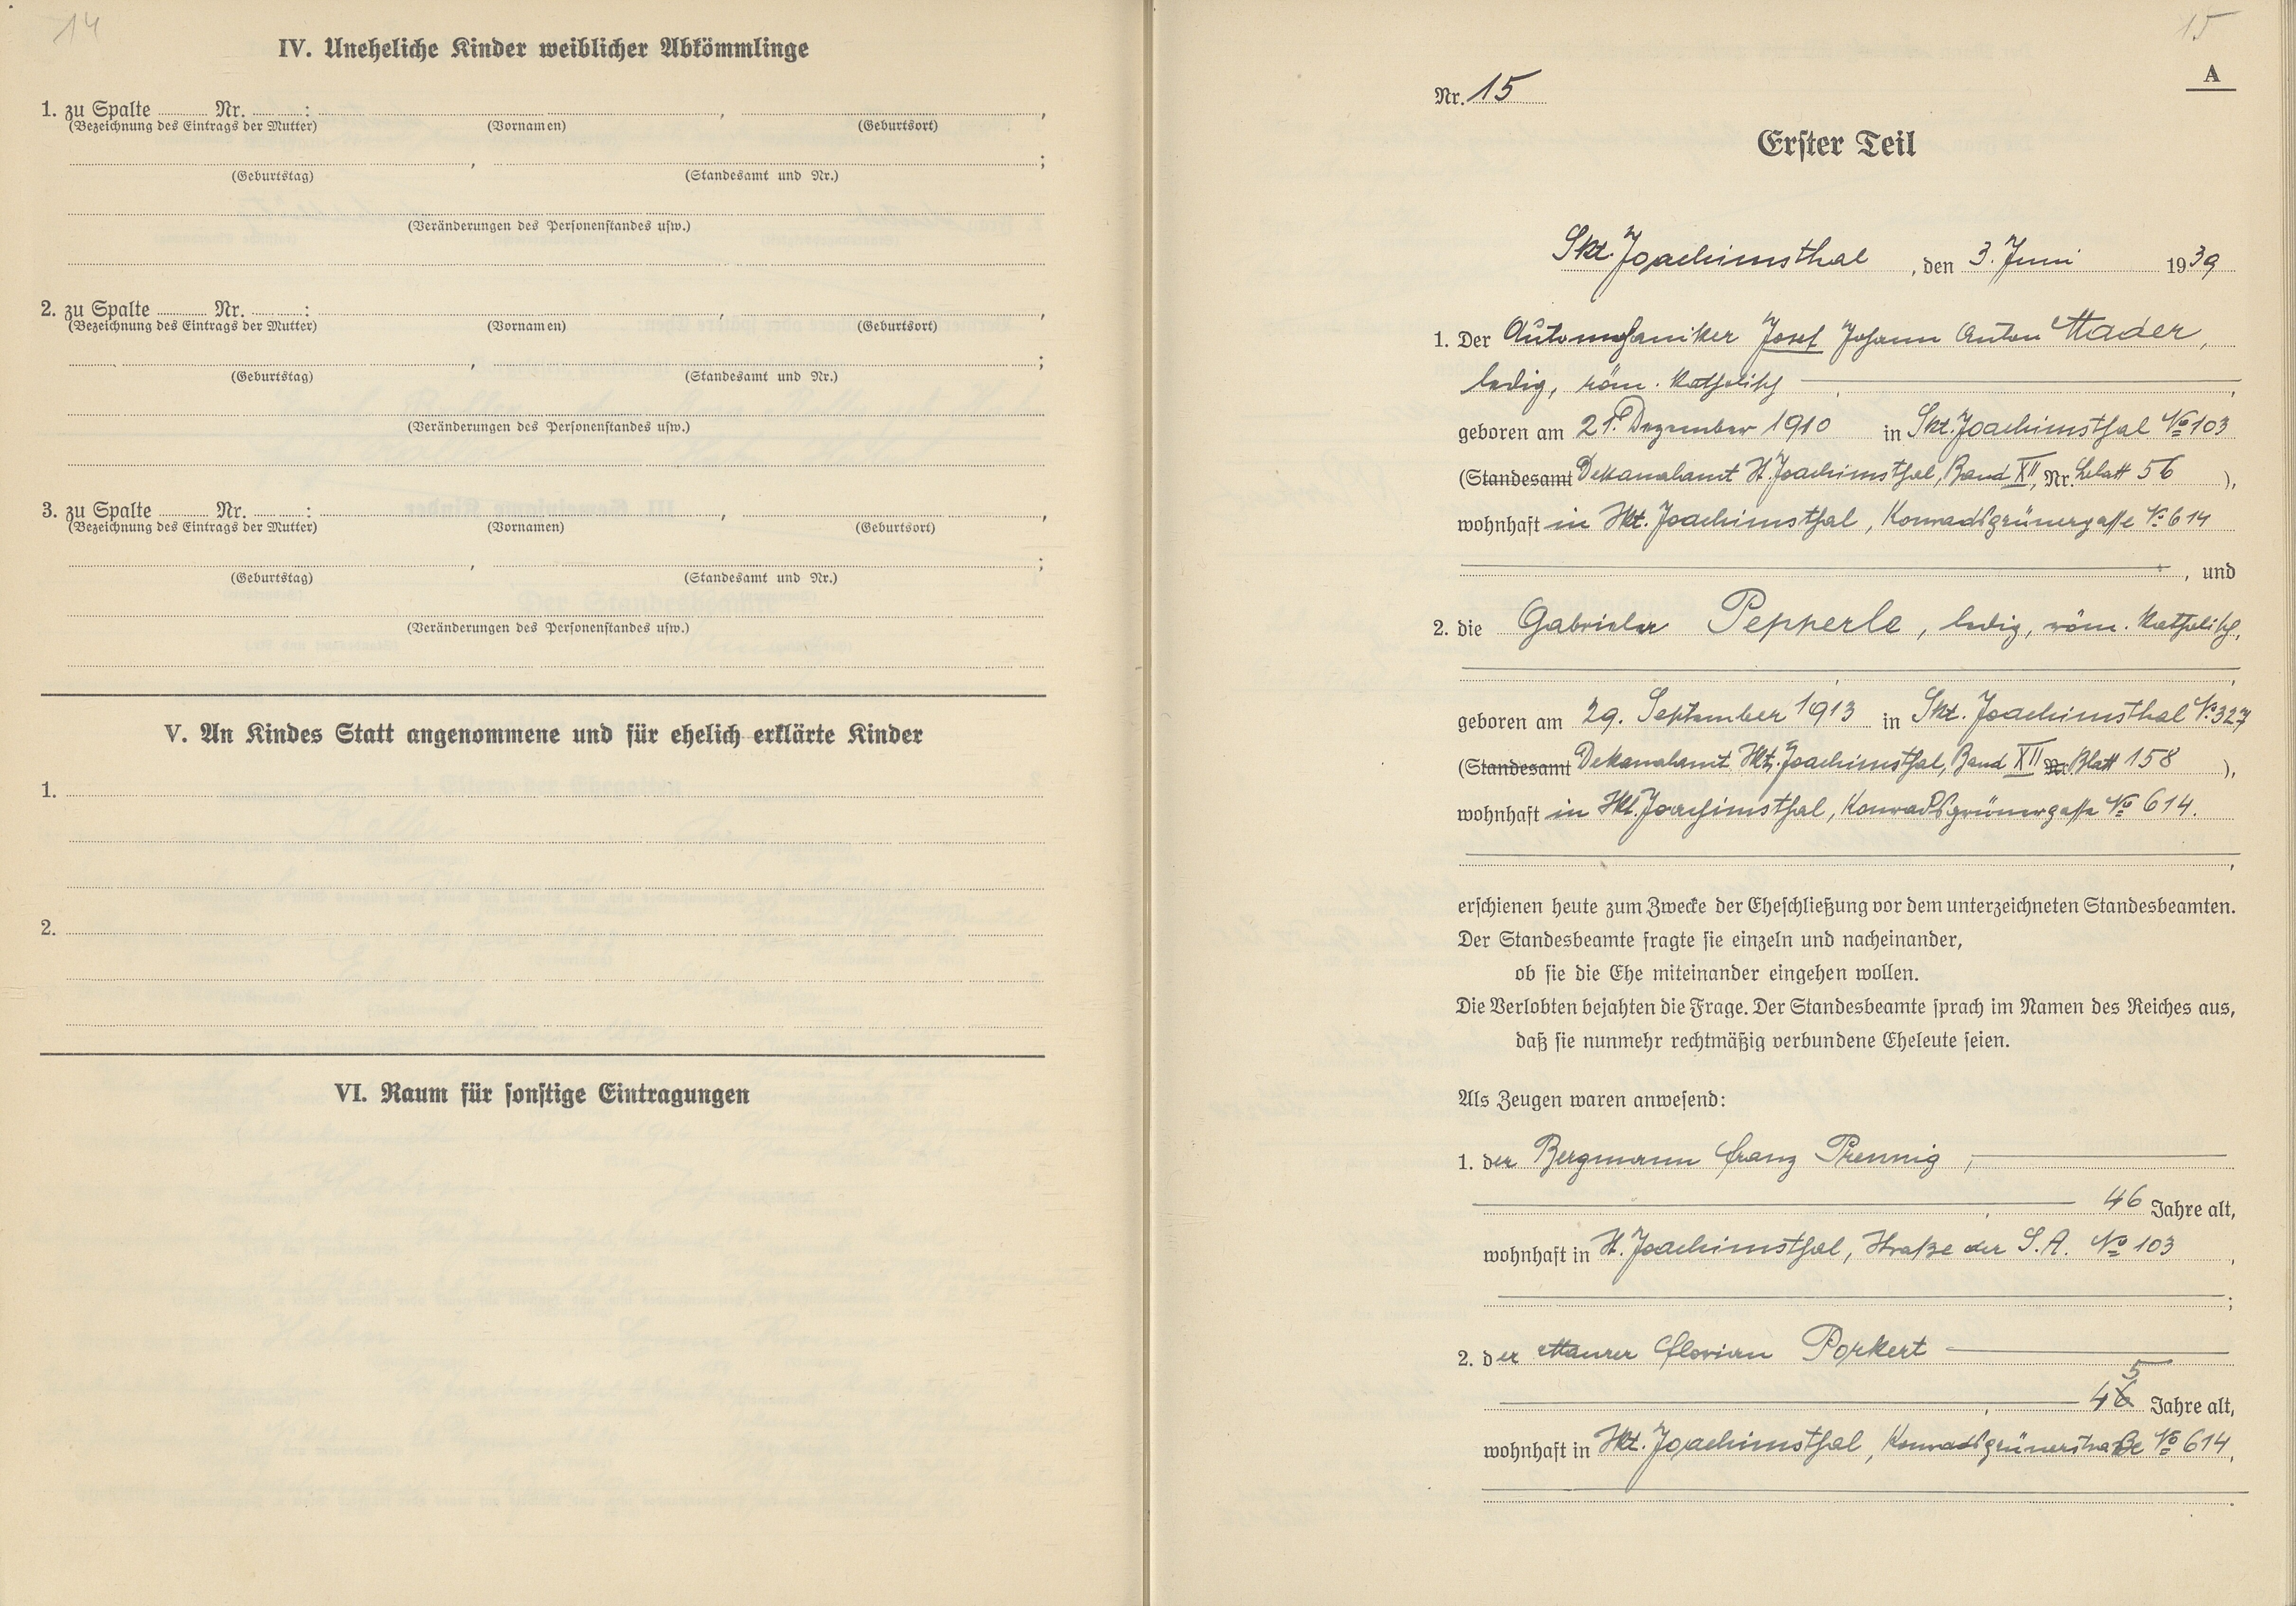 14
IV. Uneheliche Kinder weiblicher Abkömmlinge
1. zu Spalte ........ Nr. ........:
(Bezeichnung des Eintrags der Mutter) (Vornamen) (Geburtsort)
(Geburtstag) (Standesamt und Nr.)
(Veränderungen des Personenstandes usw.)
2. zu Spalte ........ Nr. ........:
(Bezeichnung des Eintrags der Mutter) (Vornamen) (Geburtsort)
(Geburtstag) (Standesamt und Nr.)
(Veränderungen des Personenstandes usw.)
3. zu Spalte ........ Nr. ........:
(Bezeichnung des Eintrags der Mutter) (Vornamen) (Geburtsort)
(Geburtstag) (Standesamt und Nr.)
(Veränderungen des Personenstandes usw.)
V. An Kindes Statt angenommene und für ehelich erklärte Kinder
1.
2.
VI. Raum für sonstige Eintragungen
15
A
Nr. 15
Erster Teil
Skt. Joachimsthal, den 3. Juni 1939
1. Der Automechaniker Josef Johann Anton Mader,
ledig, röm. katholisch
geboren am 21. Dezember 1910 in Skt. Joachimsthal No 103
(Standesamt Dekanalamt St. Joachimsthal, Band XII, Nr. Blatt 56),
wohnhaft in Skt. Joachimsthal, Konradsgrünergasse No 614
, und
2. die Gabriele Pepperle, ledig, röm. katholisch,
geboren am 29. September 1913 in Skt. Joachimsthal No 327
(Standesamt Dekanalamt Skt. Joachimsthal, Band XII Nr. Blatt 158),
wohnhaft in Skt. Joachimsthal, Konradsgrünergasse No 614.
erschienen heute zum Zwecke der Eheschließung vor dem unterzeichneten Standesbeamten.
Der Standesbeamte fragte sie einzeln und nacheinander,
ob sie die Ehe miteinander eingehen wollen.
Die Verlobten bejahten die Frage. Der Standesbeamte sprach im Namen des Reiches aus,
daß sie nunmehr rechtmäßig verbundene Eheleute seien.
Als Zeugen waren anwesend:
1. der Bergmann Franz Prennig,
46 Jahre alt,
wohnhaft in St. Joachimsthal, Straße der S.A. No 103,
2. der Maurer Florian Porkert
5
46 Jahre alt,
wohnhaft in Skt. Joachimsthal, Konradsgrünerstraße No 614,